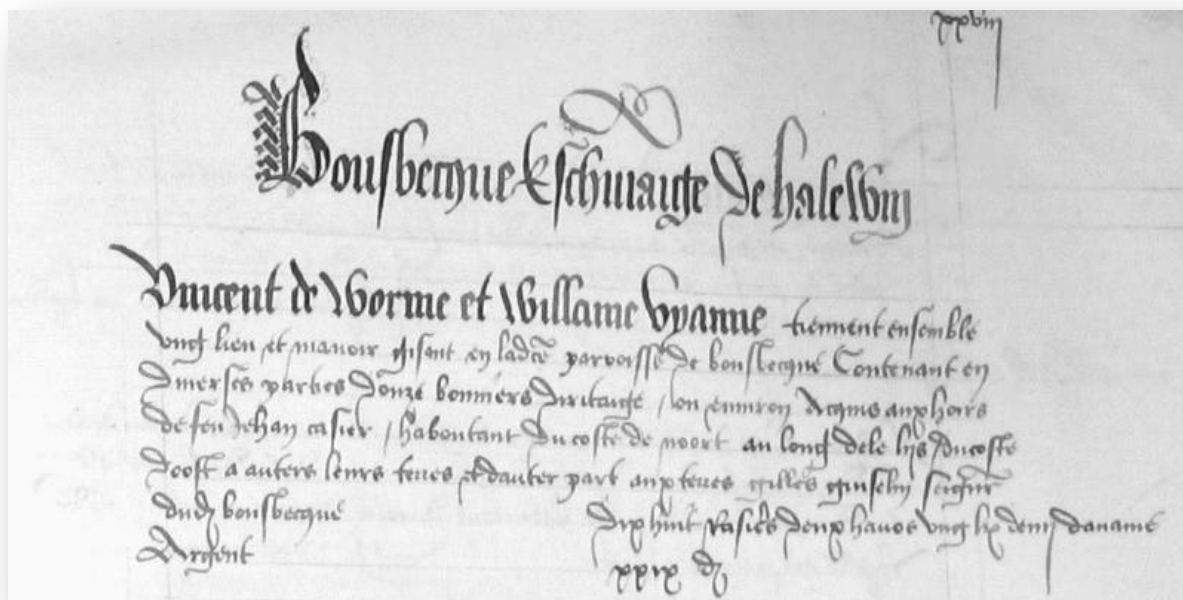 xxviij
Bousbecque Eschivaige de halewin
Vincent de Worme et Willame Vyanne tiennent ensemble
ung lieu et manoir gisant en ladcte parroisse de bousbecque Contenant en
diverses parties donze bonniers diritaige / lou environ Acquis aux hoirs
de feu Jehan casier / habontant du coste de noort au long dele lijs / du coste
doost a auters leurs teres et dauter part aux teres gilles seignr
dudt bousbecque dix huit rasieres deux havos ung demj davaine
Argent xxix d